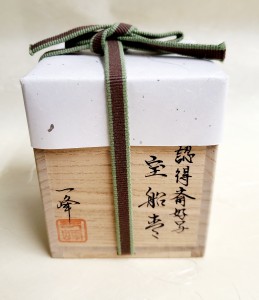 認得斎好写
宝船棗
一峰